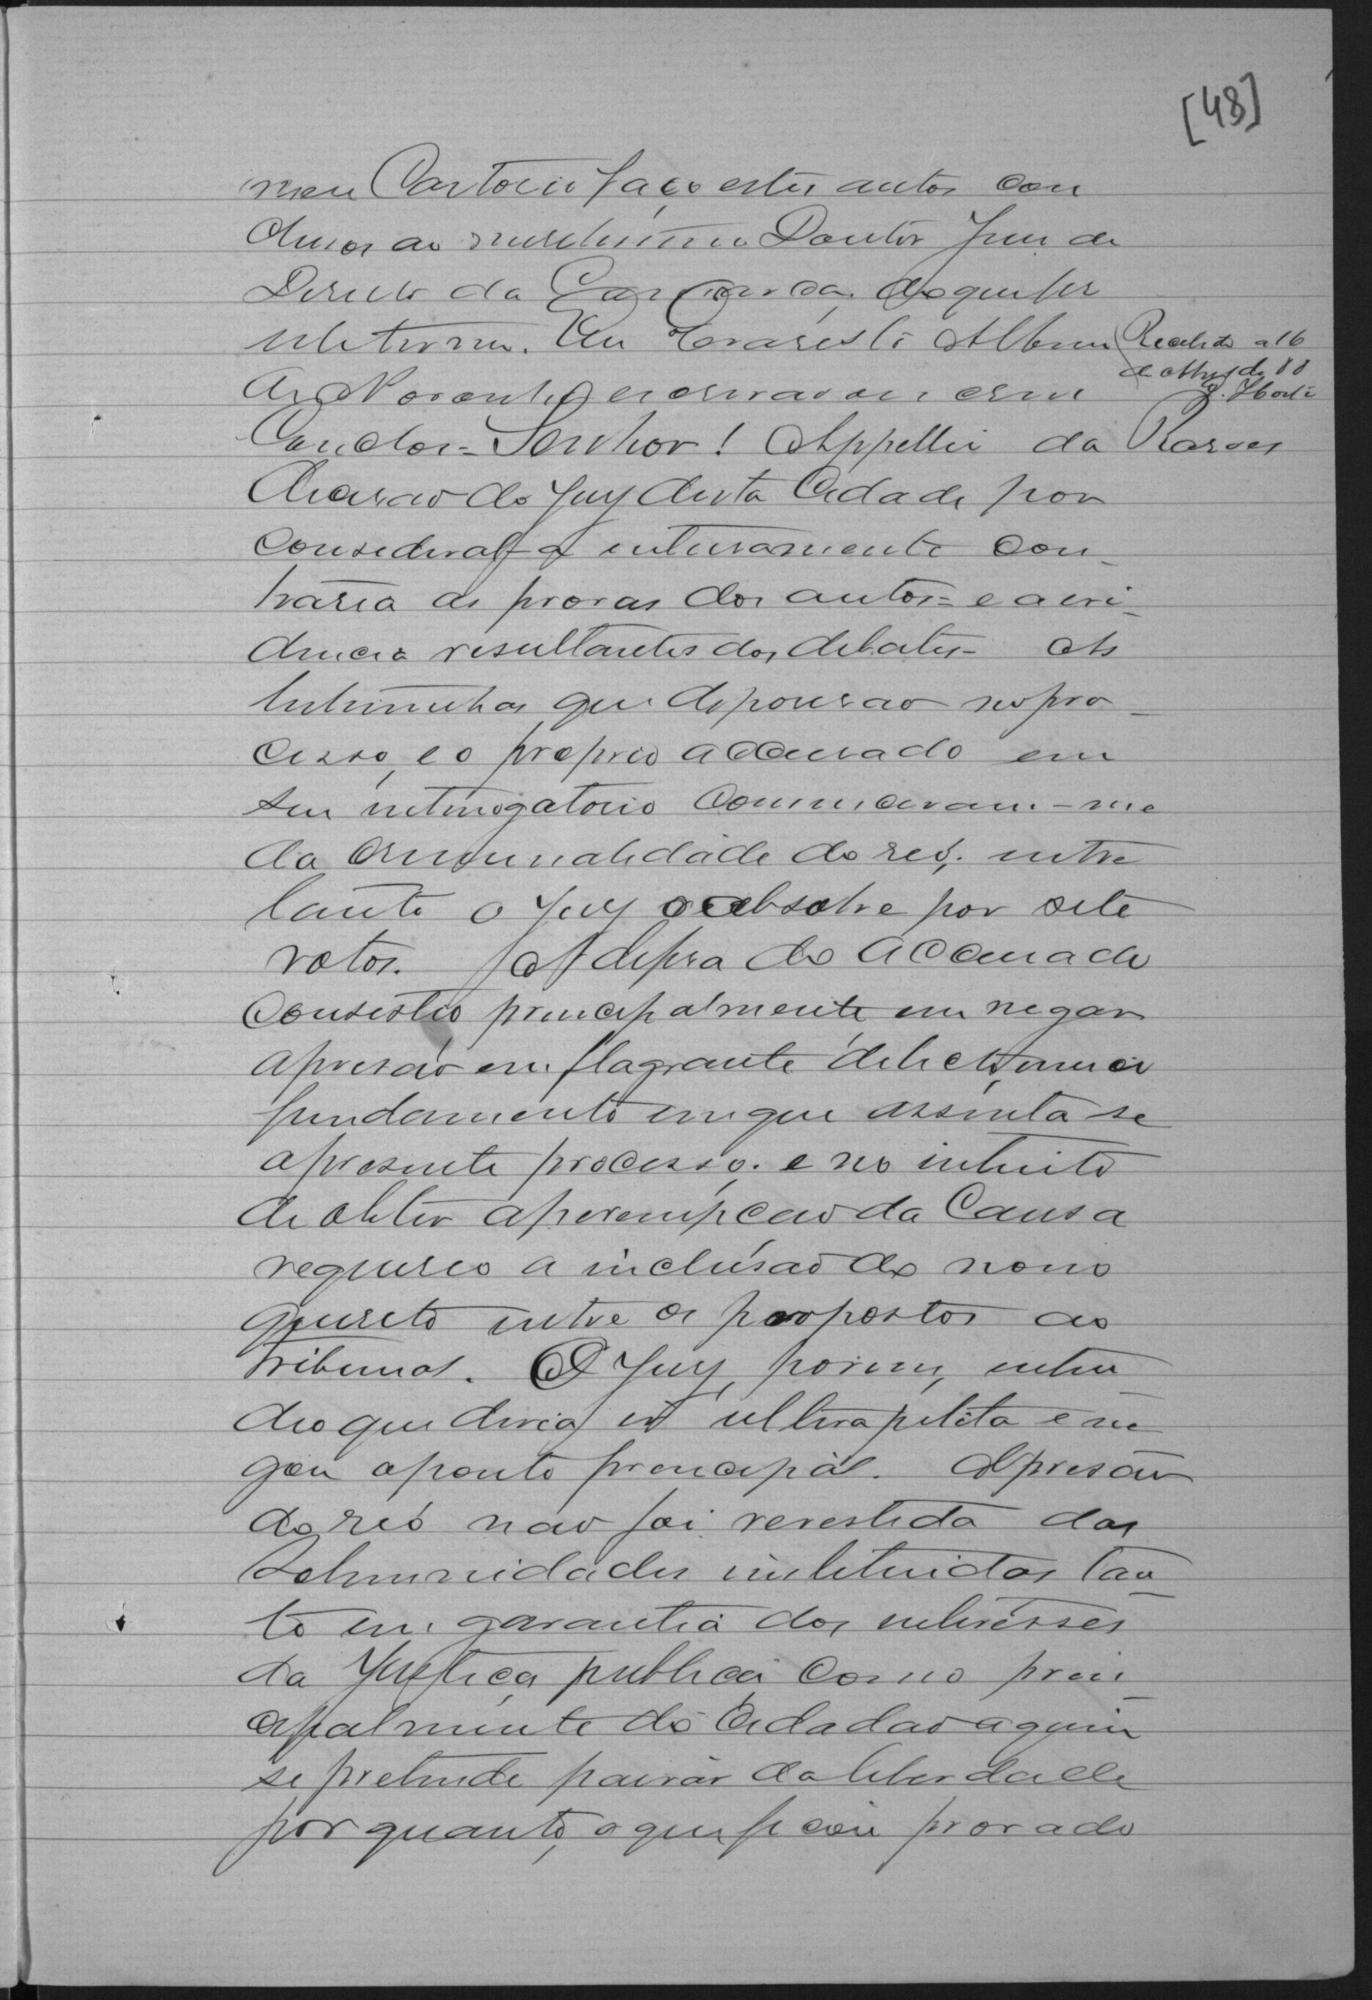 [48]
meu Cartorio faço estes autos con
clusos ao meretissimo Doutor Juiz de
Direito da Comarca, do que fiz
este termo. Eu Evaristo
de Noronha, escrivão o escrevi
Recebido a 16
de
Concluzos = Senhor! Appellei da Rasões
decisão do Jury desta Cidade por
consideral-a inteiramente con_
traria as provas dos autos = e a evi_
dencia resultantes dos debates = As
testimunhas que depouserão no pro_
cesso, e o proprio accusado em
seu interrogatorio convenceram-me
da criminalidade do reó; entre
tanto o Jury o absolve por sete
votos. A defesa do accusado
consistio principalmente em negar
a prisão em flagrante delicto, unico
fundamento em que assenta-se
apresente processo; e no intuito
de obter a perempção da Causa
requereo a inclusão do novo
quesito entre os propostos ao
tribunal. O Jury, porem, enten
deo que devia ir ultra petita e ne
gou o ponto principal. A prisão
do reó não foi revestida das
solemnidades instituidas tan
to em garantia dos interesses
da Justiça publica como prin
cipalmente do Cidadão a quem
se pretende privar da liberdade
por quanto, o que ficou provado